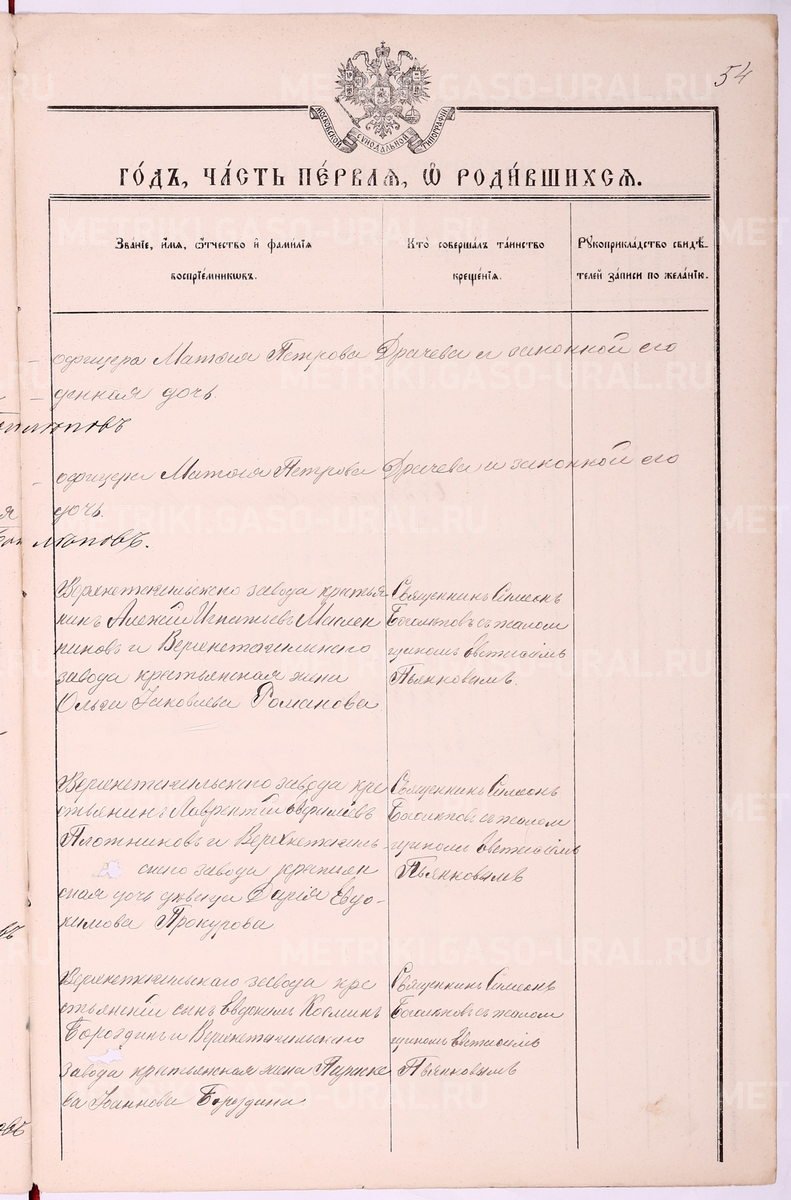 54
МОСКОВСКОЙ СѴНОДАЛЬНОЙ ТИПОГРАФІИ
ГО́ДЪ, ЧА́СТЬ ПЕ́РВАѦ, Ѽ РОДИ́ВШИХСѦ.
Зва́нїе, и́мѧ, ѻ҆́тчество и҆ фами́лїѧ
воспрїе́мниковъ.
Кто̀ соверша́лъ та́инство
креще́нїѧ.
Рꙋкоприкла́дство свидѣ́-
телей за́писи по жела́нїю.
офицера Матвия Петрова Драчева и законной его
денная дочь
офицера Матвия Петрова Драчева и законной его
дочь
Верхнетагильскаго завода крестья
нинъ Алексій Игнатіевъ Маслен
никовъ и Верхнетагильскаго
завода крестьянская жена
Ольга Іаковлева Романова
Священникъ Симеонъ
Боголюповъ съ псалом
щикомъ
Пьянковымъ.
Верхнетагильскаго завода кре
стьянинъ Лаврентій
Плотниковъ и Верхнетагиль-
скаго завода крестьян
ская дочь девица Дарія Евдо-
кимова Прокурова
Священникъ Симеонъ
Боголюповъ съ псалом
щикомъ
Пьянковымъ
Верхнетагильскаго завода кре
стьянскій сынъ Евдокимъ Косминъ
Бороздинъ и Верхнетагильскаго
завода крестьянская жена Параске
ва Іоаннова Бороздина
Священникъ Симеонъ
Боголюповъ съ псалом
щикомъ
Пьянковымъ
METRIKI.GASO-URAL.RU